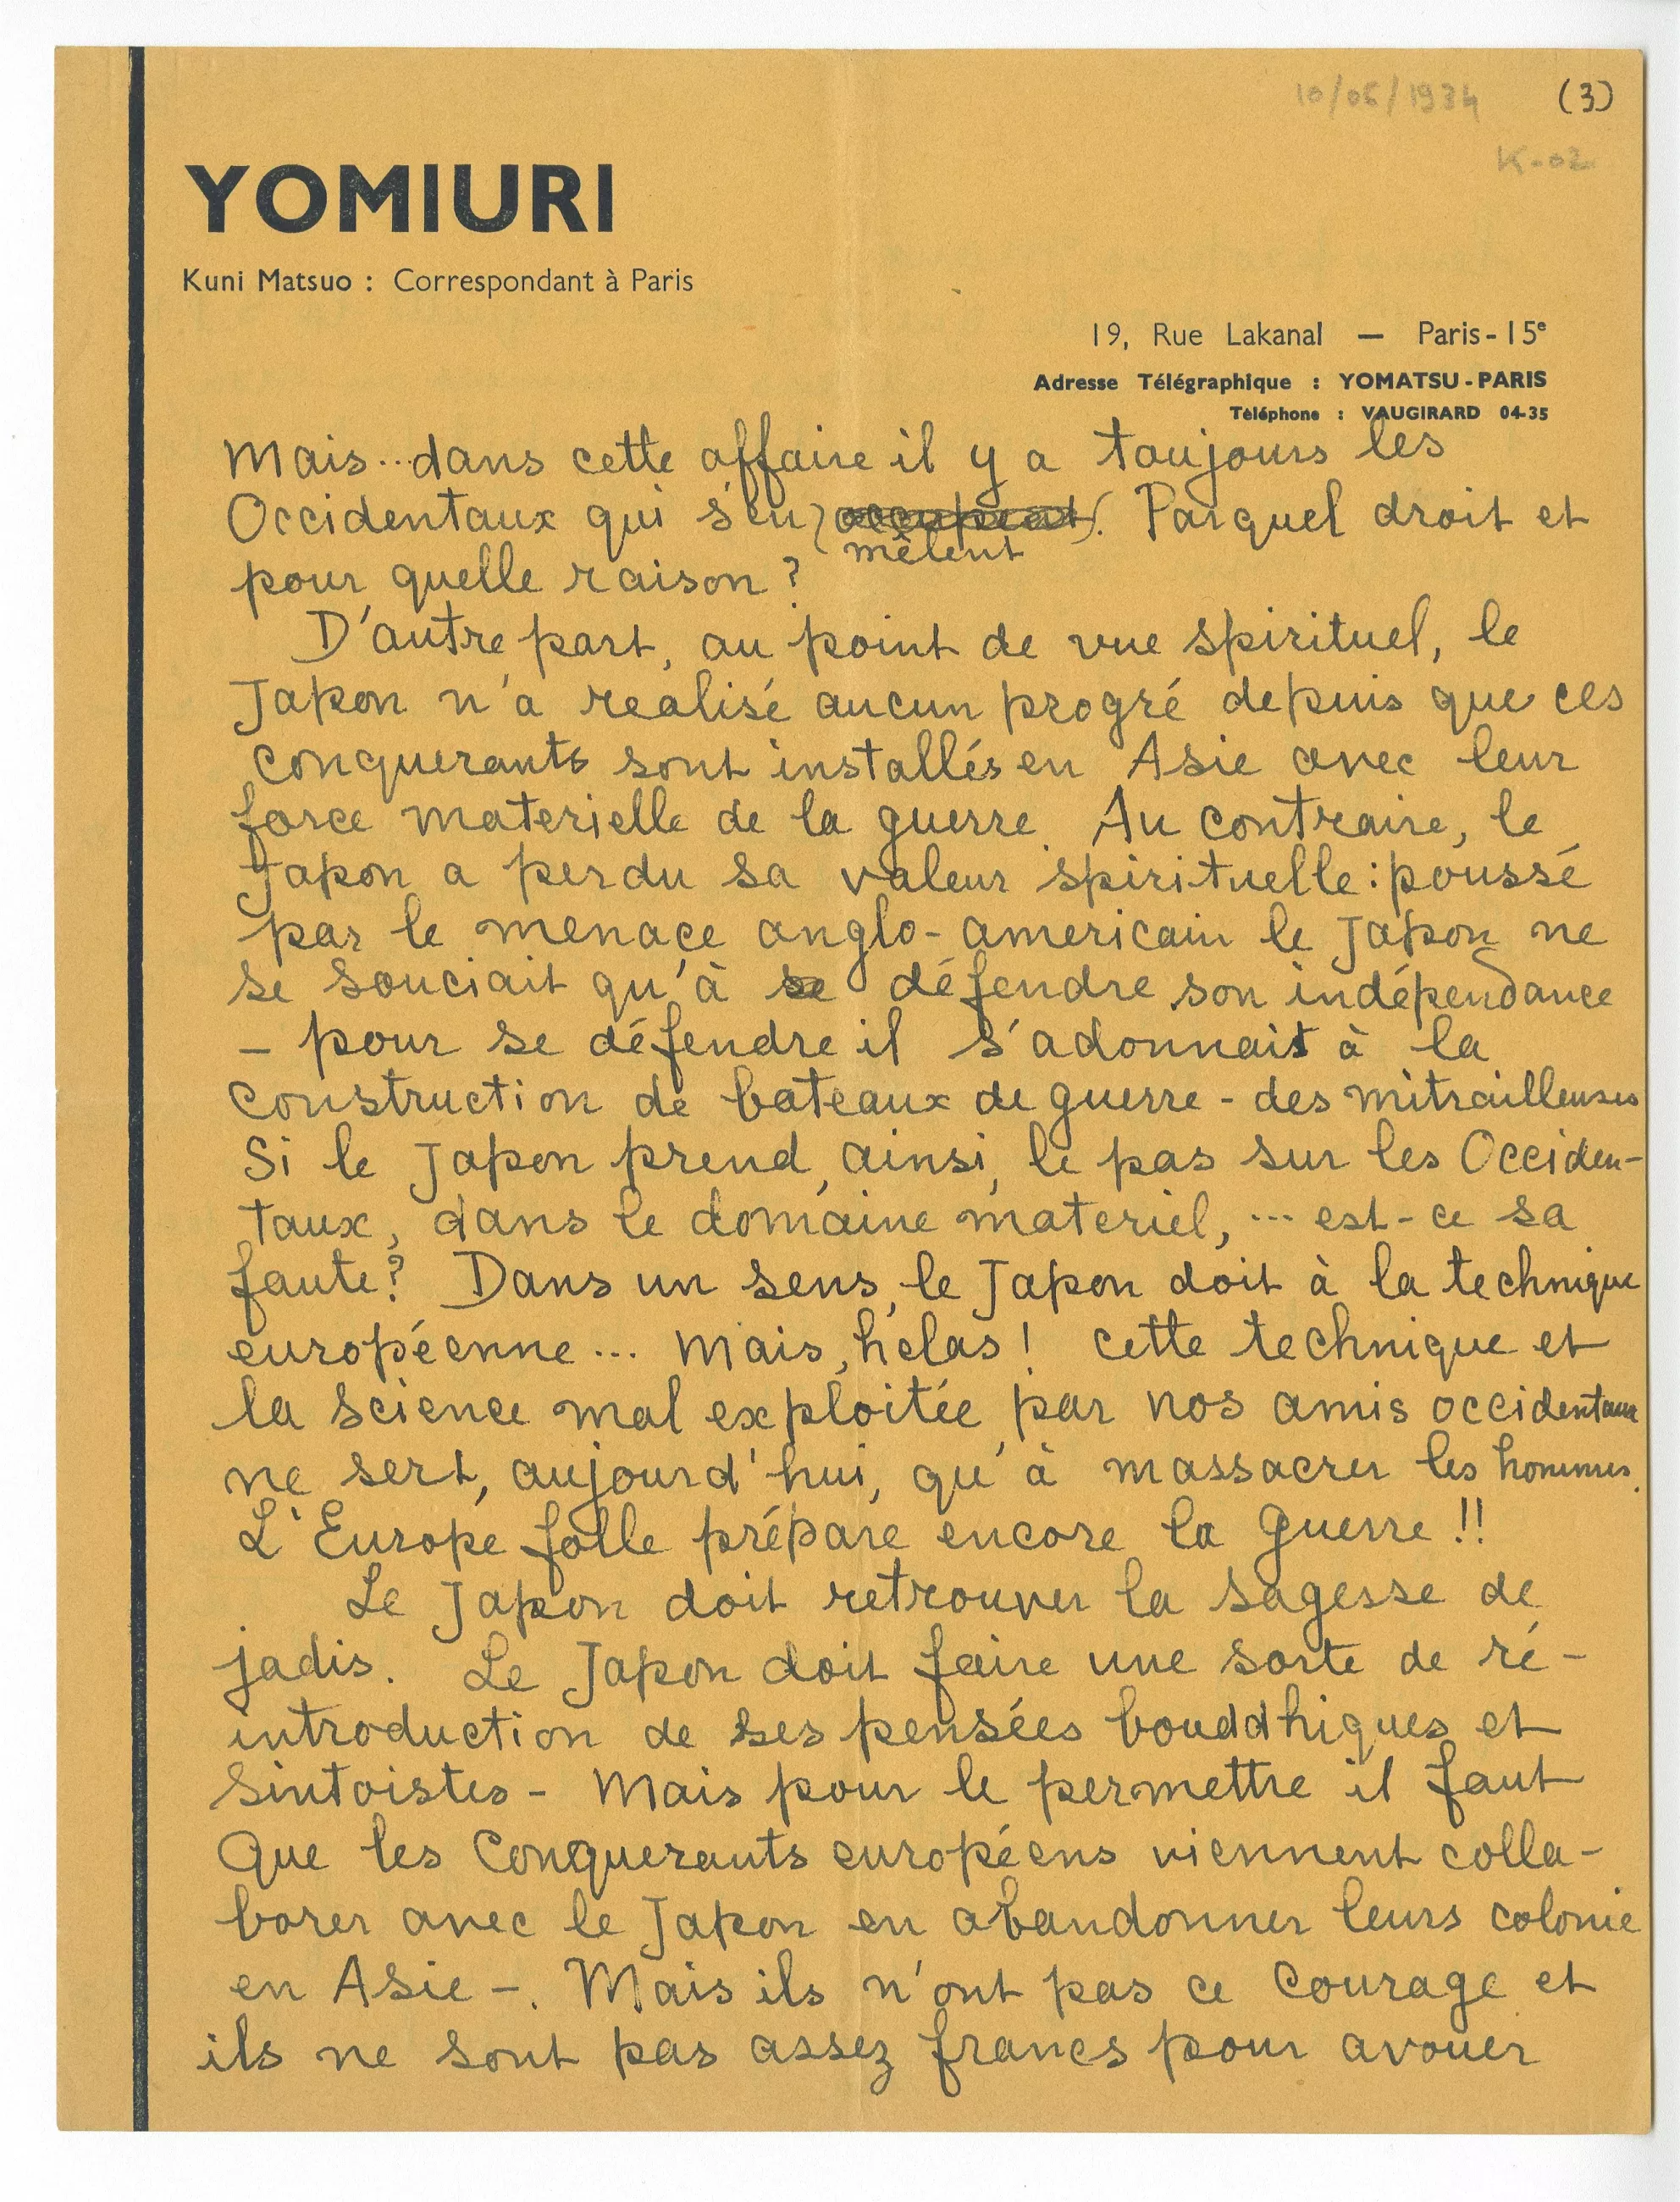 10/06/1934 (3)
K-02
YOMIURI
Kuni Matsuo : Correspondant à Paris
19, Rue Lakanal — Paris-15e
Adresse Télégraphique : YOMATSU-PARIS
Téléphone : VAUGIRARD 04-35
Mais... dans cette affaire il y a toujours les
Occidentaux qui s'en (occupent). Par quel droit et
mêlent
pour quelle raison ?
D'autre part, au point de vue spirituel, le
Japon n'a realisé aucun progré depuis que ces
conquerants sont installés en Asie avec leur
force materielle de la guerre. Au contraire, le
Japon a perdu sa valeur spirituelle : poussé
par le menace anglo-americain le Japon ne
se souciait qu'à se défendre son indépendance
- pour se défendre il s'adonnait à la
construction de bateaux de guerre - des mitrailleuses
Si le Japon prend, ainsi, le pas sur les Occiden-
taux, dans le domaine materiel, ... est-ce sa
faute ? Dans un sens, le Japon doit à la technique
européenne ... Mais, hélas ! cette technique et
la science mal exploitée par nos amis occidentaux
ne sert, aujourd'hui, qu'à massacrer les hommes.
L'Europe folle prépare encore la guerre !!
Le Japon doit retrouver la sagesse de
jadis. Le Japon doit faire une sorte de ré-
introduction de ses pensées bouddhiques et
Sintoistes - Mais pour le permettre il faut
Que les Conquerants européens viennent colla-
borer avec le Japon en abandonner leurs colonie
en Asie -. Mais ils n'ont pas ce Courage et
ils ne sont pas assez francs pour avouer